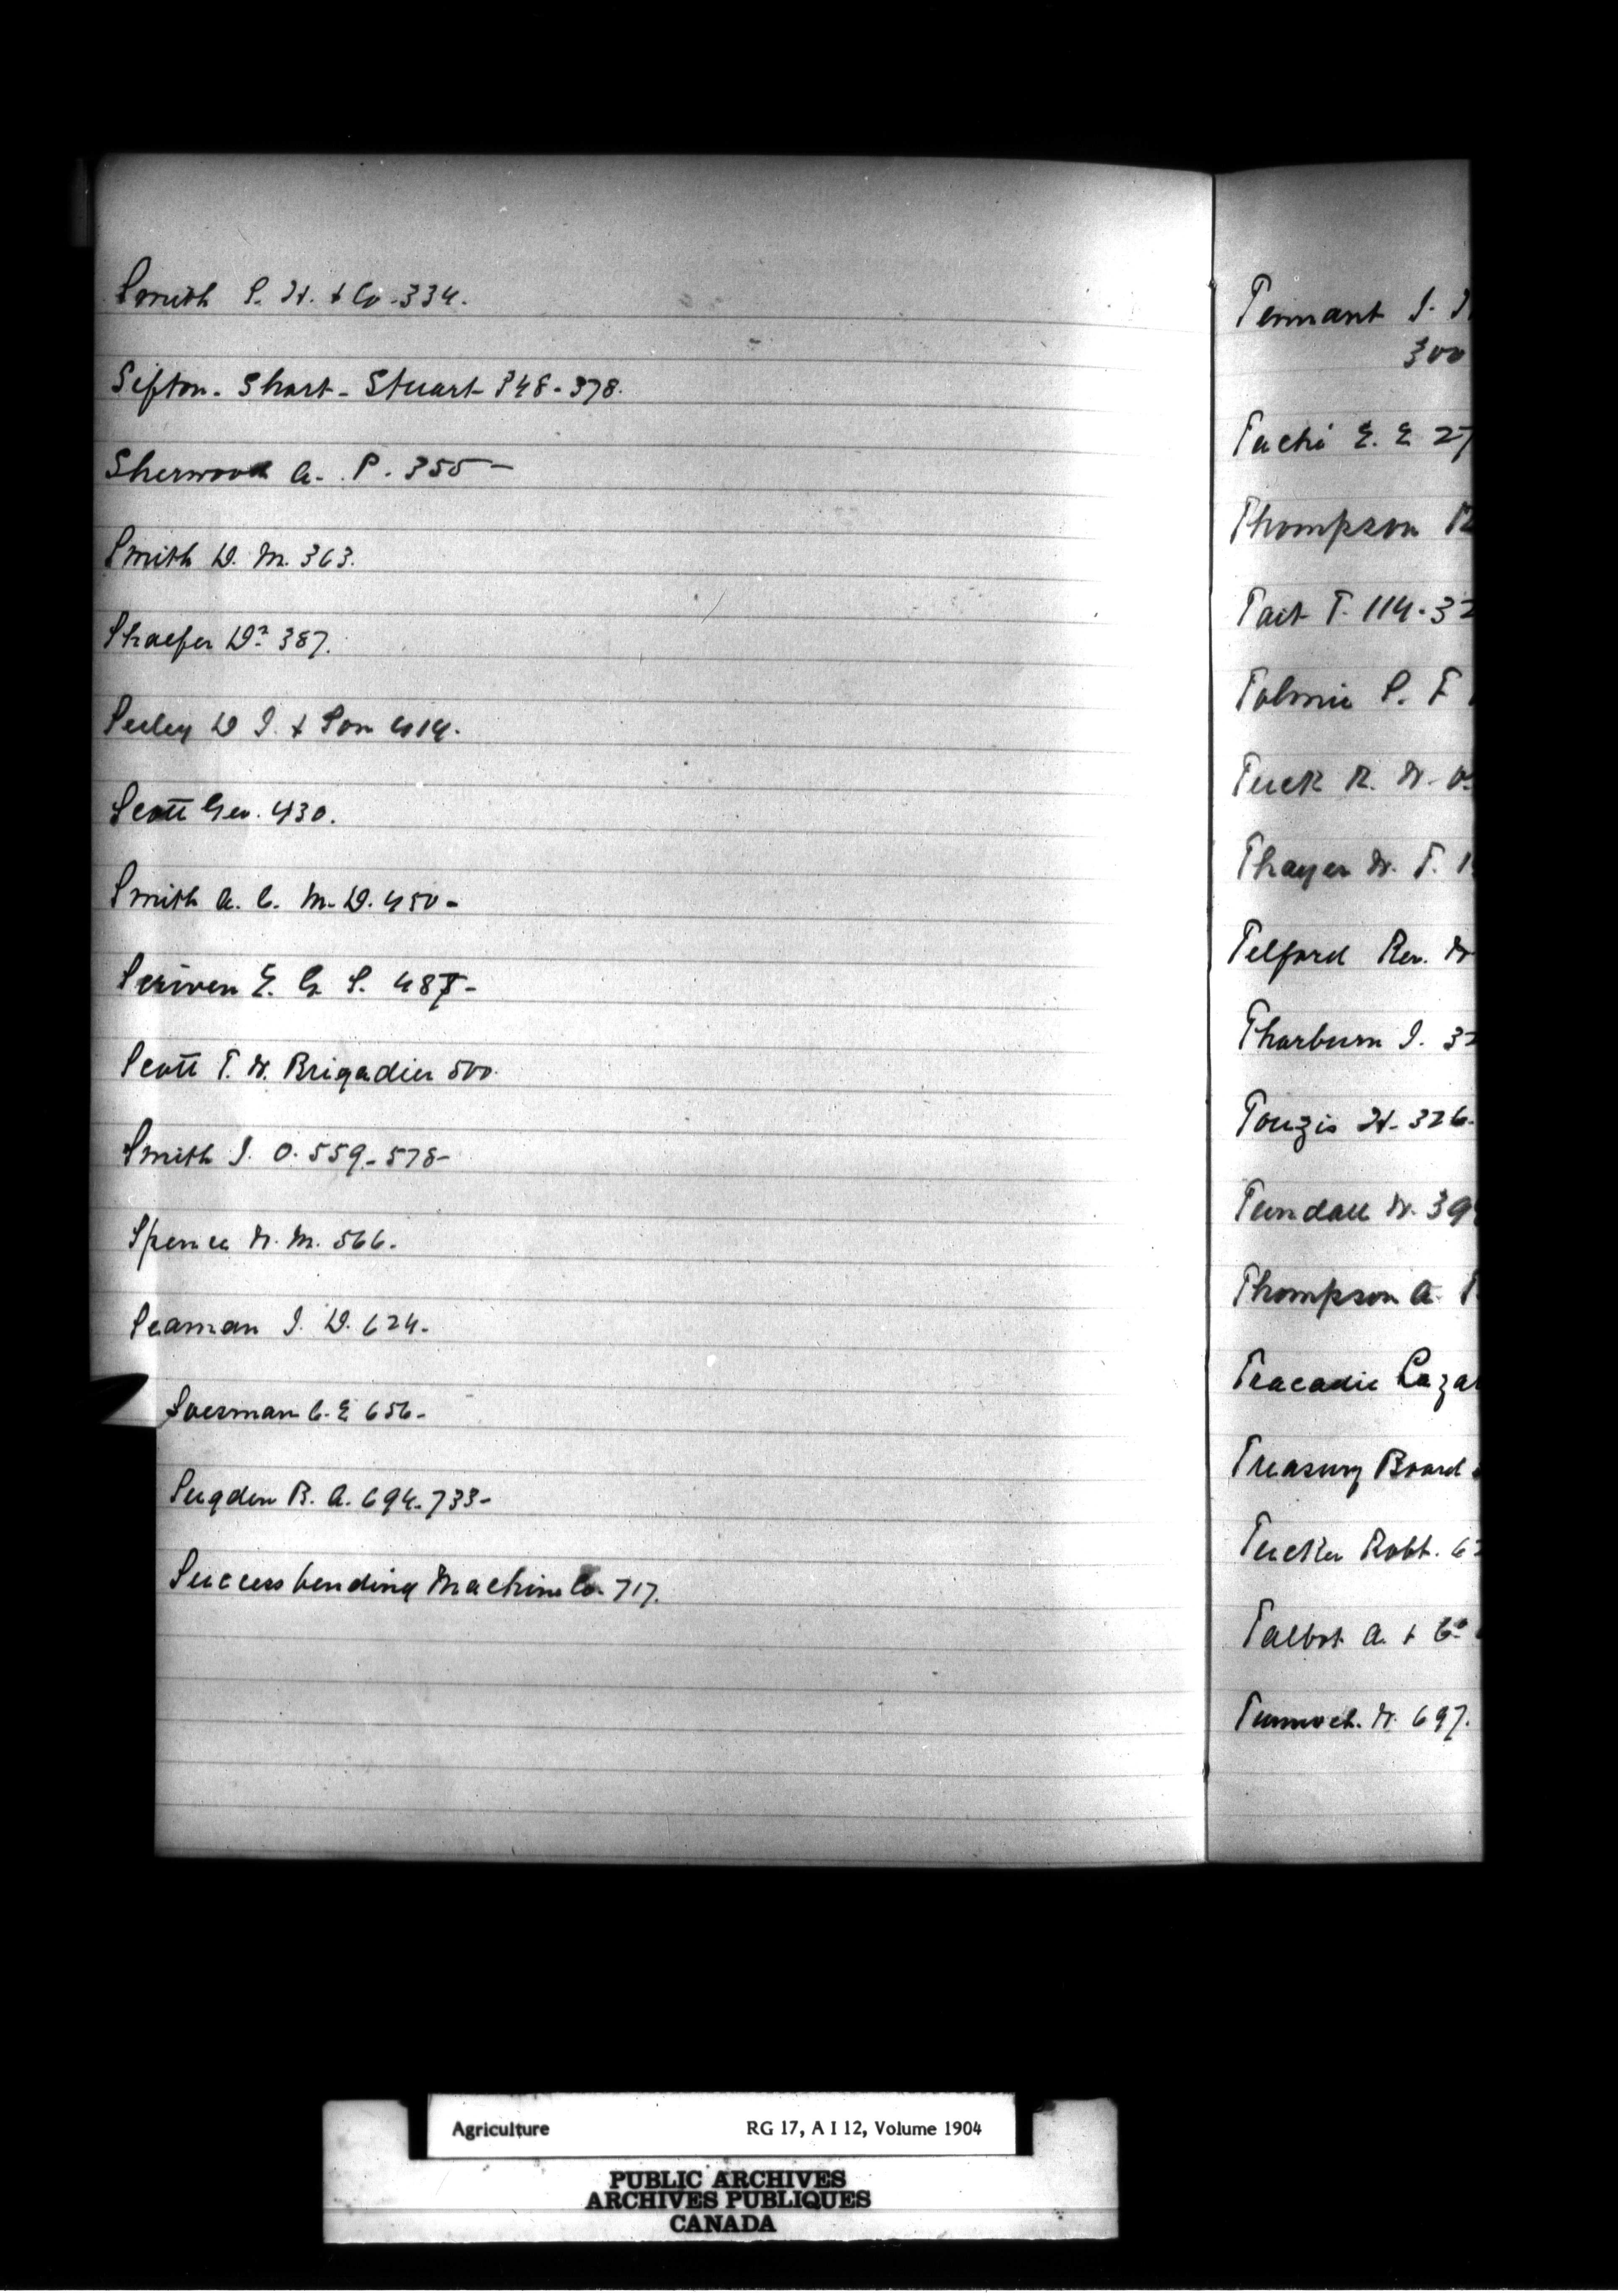 Smith S. H. & Co. 334.
Sifton. Short - Stuart 348 - 378.
Sherwood A. P. 355 -
Smith D. M. 363.
Shaefer Dr 387.
Seeley D I. & Son 414.
Scott Geo. 430.
Smith A. C. M. D. 450 -
Scriven E. G. S. 487 -
Scott T. W. Brigadier 500.
Smith J. O. 559 - 578 -
Spence W. M. 566.
Seaman J. D. 624.
Soerman C. E 656 -
Sugden R. A. 694. 733 -
Success bending Machine Co. 717.
Tennant J.
300
Taché E. E 27
Thompson
Tait T. 114 - 32
Tolmie S. F
Tuck R. W.
Thayer W. T. 1
Telford Rev. W
Thorburn J. 32
Touzis H. 326.
Tundall W. 39
Thompson A.
Tracadie Lazar
Treasury Board
Tucker Robt. 62
Talbot A. & Co
W. 697.
Agriculture RG 17, A I 12, Volume 1904
PUBLIC ARCHIVES
ARCHIVES PUBLIQUES
CANADA